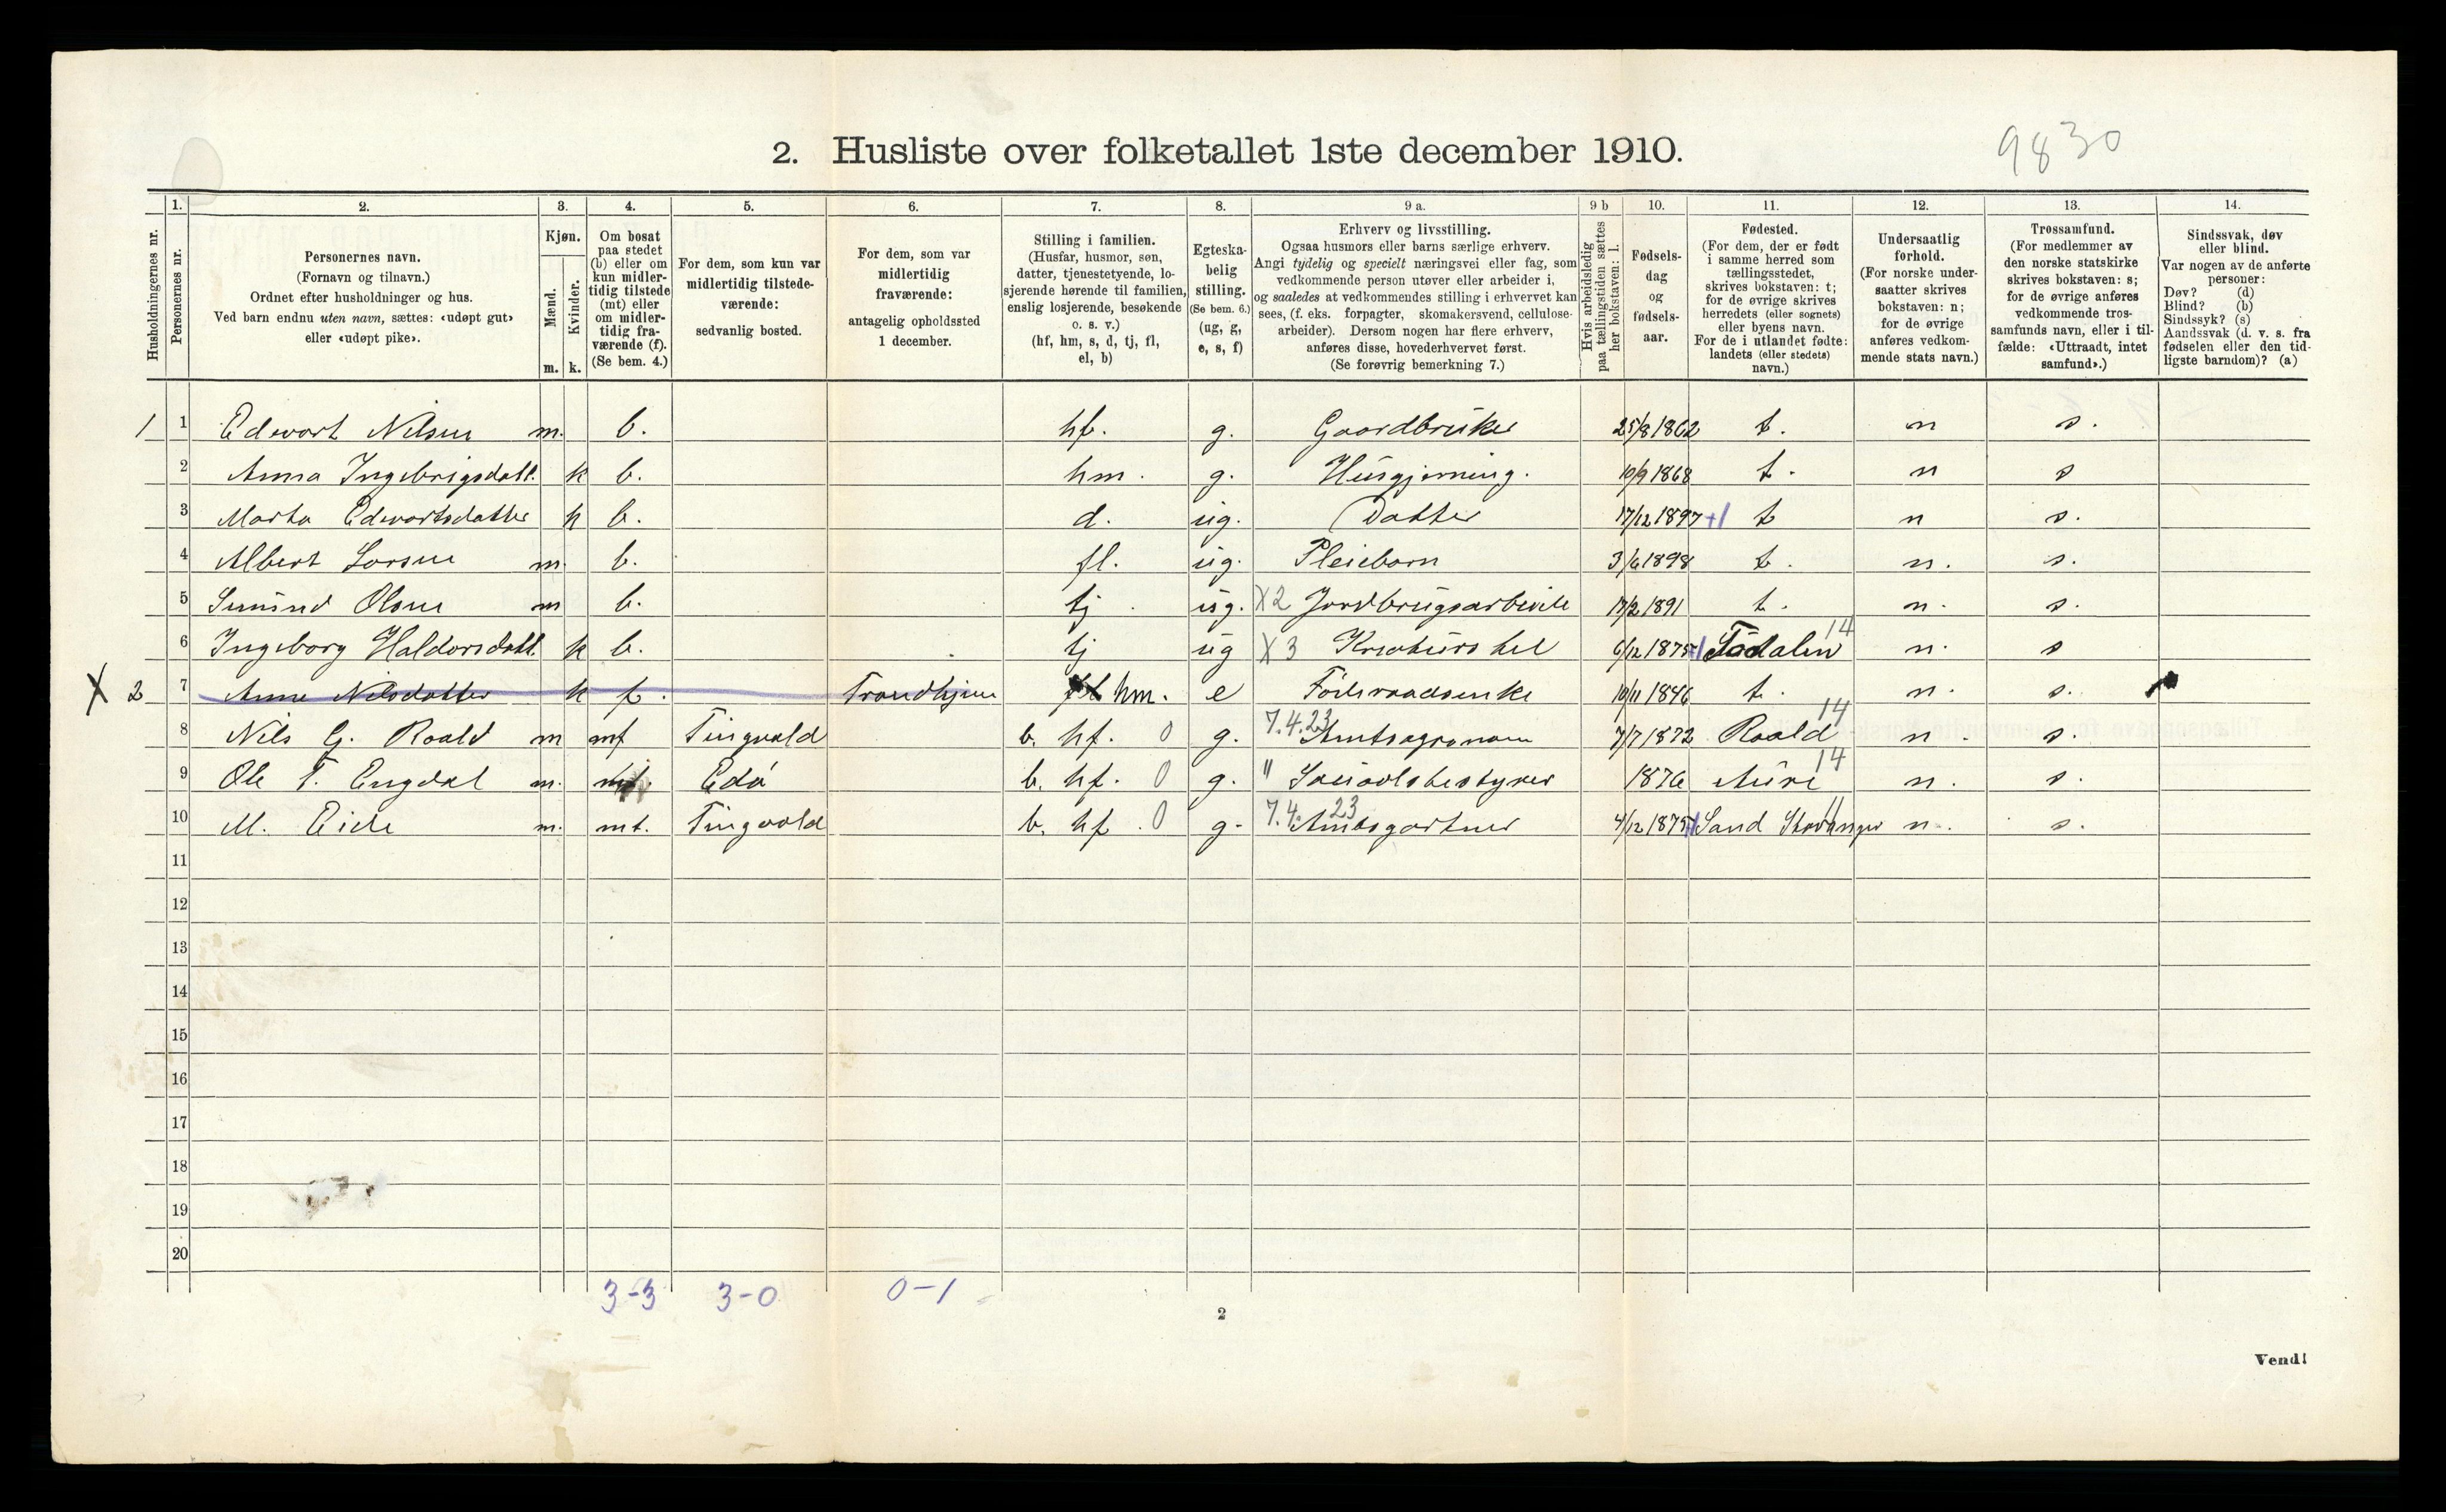 9830
2. Husliste over folketallet 1ste december 1910.
1. 2. 3. 4. 5. 6. 7. 8. 9 a. 9 b 10. 11. 12. 13. 14.
Husholdningernes nr.
Personernes nr.
Personernes navn.
(Fornavn og tilnavn.)
Ordnet efter husholdninger og hus.
Ved barn endnu uten navn, sættes: «udøpt gut»
eller «udøpt pike».
Kjøn.
Mænd.
Kvinder.
m. k.
Om bosat
paa stedet
(b) eller om
kun midler-
tidig tilstede
(mt) eller
om midler-
tidig fra-
værende (f).
(Se bem. 4.)
For dem, som kun var
midlertidig tilstede-
værende:
sedvanlig bosted.
For dem, som var
midlertidig
fraværende:
antagelig opholdssted
1 december.
Stilling i familien.
(Husfar, husmor, søn,
datter, tjenestetyende, lo-
sjerende hørende til familien,
enslig losjerende, besøkende
o. s. v.)
(hf, hm, s, d, tj, fl,
el, b)
Egteska-
belig
stilling.
(Se bem. 6.)
(ug, g,
e, s, f)
Erhverv og livsstilling.
Ogsaa husmors eller barns særlige erhverv.
Angi tydelig og specielt næringsvei eller fag, som
vedkommende person utøver eller arbeider i,
og saaledes at vedkommendes stilling i erhvervet kan
sees, (f. eks. forpagter, skomakersvend, cellulose-
arbeider). Dersom nogen har flere erhverv,
anføres disse, hovederhvervet først.
(Se forøvrig bemerkning 7.)
Hvis arbeidsledig
paa tællingstiden sættes
her bokstaven: l.
Fødsels-
dag
og
fødsels-
aar.
Fødested.
(For dem, der er født
i samme herred som
tællingsstedet,
skrives bokstaven: t;
for de øvrige skrives
herredets (eller sognets)
eller byens navn.
For de i utlandet fødte:
landets (eller stedets)
navn.)
Undersaatlig
forhold.
(For norske under-
saatter skrives
bokstaven: n;
for de øvrige
anføres vedkom-
mende stats navn.)
Trossamfund.
(For medlemmer av
den norske statskirke
skrives bokstaven: s;
for de øvrige anføres
vedkommende tros-
samfunds navn, eller i til-
fælde: «Uttraadt, intet
samfund».)
Sindssvak, døv
eller blind.
Var nogen av de anførte
personer:
Døv? (d)
Blind? (b)
Sindssyk? (s)
Aandssvak (d. v. s. fra
fødselen eller den tid-
ligste barndom)? (a)
1 1 Edvart Nilsen m. b. hf. g. Gaardbruker 25/8 1862 t. n s.
2 Anna Ingebrigsdatt. k b. hm. g. Husgjerning. 10/9 1868 t. n s
3 Marta Edvartsdatter k b. d. ug. Datter 17/12 1897 +1 t n s.
4 Albert Larsen m. b. fl. ug. Pleiebarn 3/6 1898 t. n. s.
5 Olsen m b. tj. ug. X2 Jordbrugsarbeide 17/2 1891 t. n. s.
6 Ingeborg Haldorsdatt. k b. tj ug X3 Kreaturs tel 6/12 1875 +1 Todalen 14 n. s
X 2 7 Anne Nilsdatter k f. Trondhjem hm. e Föderaadsenke 10/11 1846 t. n. s.
8 Nils G. Roald m mt Tingvold b. hf. 0 g. 7.4.23 Amtsagronom 7/7 1872 Roald 14 n. s.
9 Ole T. Engdal m. mt. Edö b. hf. 0 g. " 1876 Aure 14 n. s.
10 M. Eide m. mt. Tingvold b. hf. 0 g. 7.4.23 Amtsgartner 4/12 1875 +1 Sand Stavanger 11 n. s.
11
12
13
14
15
16
17
18
19
20
3-3 3-0 0-1
2
Vend!